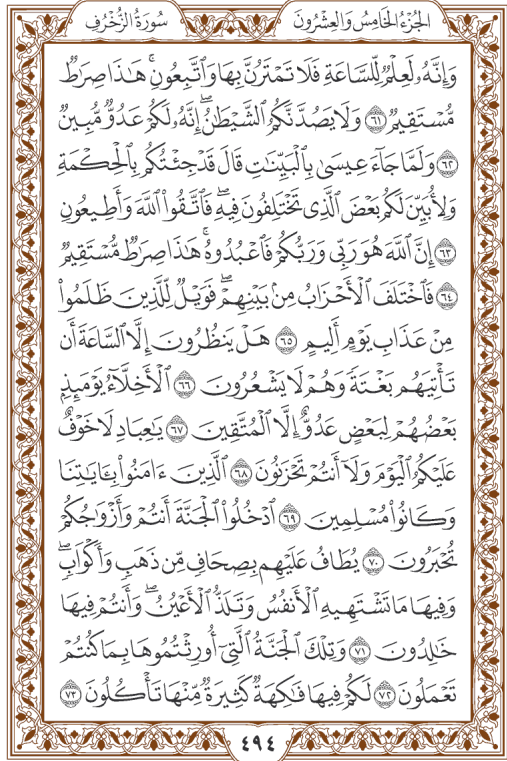 الجُزْءُ الخَامِسُ وَالعِشْرُونَ
سُورَةُ الزُّخْرُفِ
وَإِنَّهُۥ لَعِلْمٌ لِّلسَّاعَةِ فَلَا تَمْتَرُنَّ بِهَا وَٱتَّبِعُونِۚ هَٰذَا صِرَٰطٌ
مُّسْتَقِيمٌ ٦١ وَلَا يَصُدَّنَّكُمُ ٱلشَّيْطَٰنُۖ إِنَّهُۥ لَكُمْ عَدُوٌّ مُّبِينٌ
٦٢ وَلَمَّا جَآءَ عِيسَىٰ بِٱلْبَيِّنَٰتِ قَالَ قَدْ جِئْتُكُم بِٱلْحِكْمَةِ
وَلِأُبَيِّنَ لَكُم بَعْضَ ٱلَّذِى تَخْتَلِفُونَ فِيهِۖ فَٱتَّقُوا۟ ٱللَّهَ وَأَطِيعُونِ
٦٣ إِنَّ ٱللَّهَ هُوَ رَبِّى وَرَبُّكُمْ فَٱعْبُدُوهُۚ هَٰذَا صِرَٰطٌ مُّسْتَقِيمٌ
٦٤ فَٱخْتَلَفَ ٱلْأَحْزَابُ مِنۢ بَيْنِهِمْۖ فَوَيْلٌ لِّلَّذِينَ ظَلَمُوا۟
مِنْ عَذَابِ يَوْمٍ أَلِيمٍ ٦٥ هَلْ يَنظُرُونَ إِلَّا ٱلسَّاعَةَ أَن
تَأْتِيَهُم بَغْتَةً وَهُمْ لَا يَشْعُرُونَ ٦٦ ٱلْأَخِلَّآءُ يَوْمَئِذٍۭ
بَعْضُهُمْ لِبَعْضٍ عَدُوٌّ إِلَّا ٱلْمُتَّقِينَ ٦٧ يَٰعِبَادِ لَا خَوْفٌ
عَلَيْكُمُ ٱلْيَوْمَ وَلَآ أَنتُمْ تَحْزَنُونَ ٦٨ ٱلَّذِينَ ءَامَنُوا۟ بِـَٔايَٰتِنَا
وَكَانُوا۟ مُسْلِمِينَ ٦٩ ٱدْخُلُوا۟ ٱلْجَنَّةَ أَنتُمْ وَأَزْوَٰجُكُمْ
تُحْبَرُونَ ٧٠ يُطَافُ عَلَيْهِم بِصِحَافٍ مِّن ذَهَبٍ وَأَكْوَابٍۖ
وَفِيهَا مَا تَشْتَهِيهِ ٱلْأَنفُسُ وَتَلَذُّ ٱلْأَعْيُنُۖ وَأَنتُمْ فِيهَا
خَٰلِدُونَ ٧١ وَتِلْكَ ٱلْجَنَّةُ ٱلَّتِىٓ أُورِثْتُمُوهَا بِمَا كُنتُمْ
تَعْمَلُونَ ٧٢ لَكُمْ فِيهَا فَٰكِهَةٌ كَثِيرَةٌ مِّنْهَا تَأْكُلُونَ ٧٣
٤٩٤